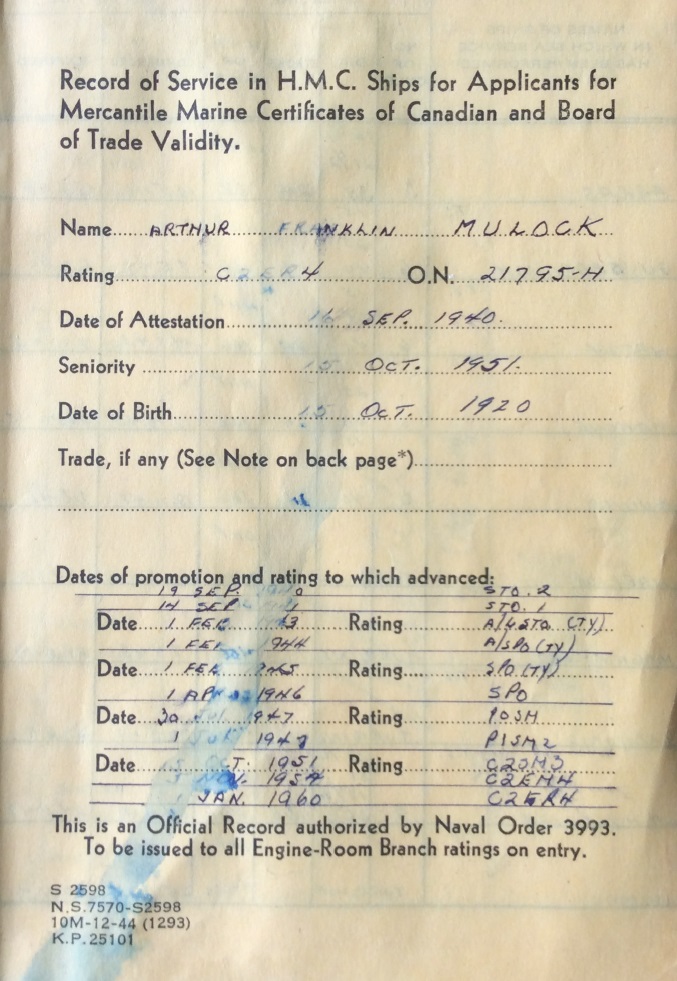 Record of Service in H.M.C. Ships for Applicants for
Mercantile Marine Certificates of Canadian and Board
of Trade Validity.
Name ARTHUR FRANKLIN MULOCK
Rating C2ER4 O.N. 21795-H
Date of Attestation SEP. 1940
Seniority 15 OCT. 1951
Date of Birth 15 OCT. 1920
Trade, if any (See Note on back page*)
Dates of promotion and rating to which advanced:
19 SEP. STO. 2
14 SEP STO. 1
Date 1 FEB Rating A/LSTO (TY)
1 FEB 1944 A/SPO (TY)
Date 1 FEB 1945 Rating SPO (TY)
1 AP 1946 SPO
Date 30 1947 Rating POSM
1 194 P1SM2
Date OCT. 1951 Rating C2SM3
NOV. 1954 C2EM4
JAN. 1960 C2ER4
This is an Official Record authorized by Naval Order 3993.
To be issued to all Engine-Room Branch ratings on entry.
S 2598
N.S.7570-S2598
10M-12-44 (1293)
K.P.25101